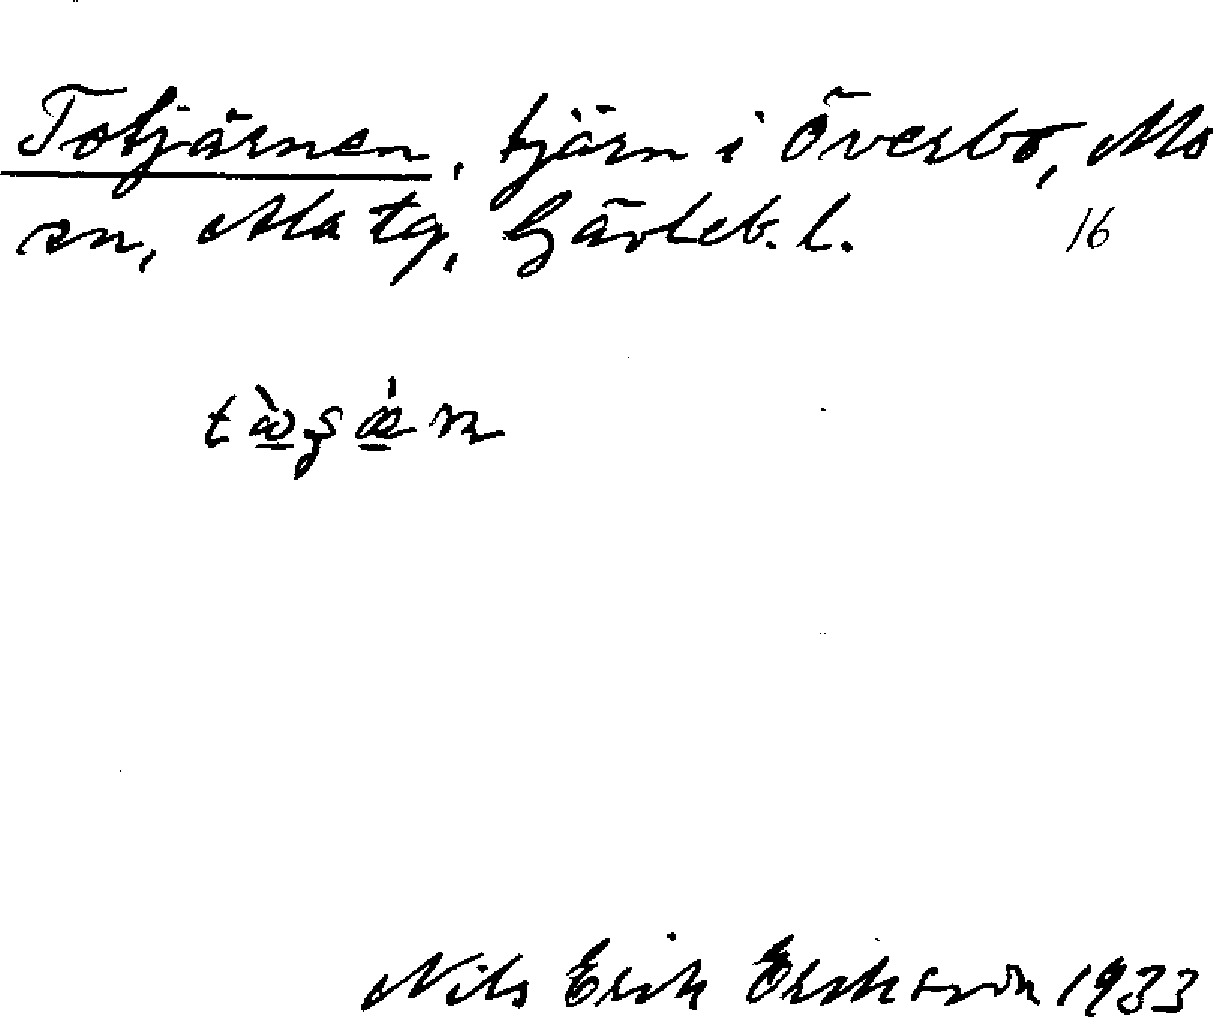 Totjärnen, tjärn i Överbo, Mo
sn, Ala tg, Gävleb. l. 16
Nils Erik Eriksson 1933